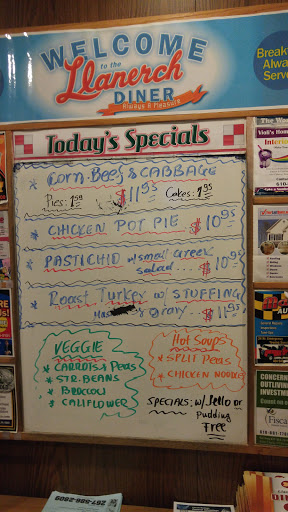 WELCOME
to the
Llanerch
DINER
Always A Pleasure
Today's Specials
* Corn. Beef & CABBAGE
$11.95
Pies: 1.50
Cakes: 1.95
* CHICKEN POT PIE $10.95
* PASTICHIO w/small Greek
salad... $10.95
* Roast Turkey w/ STUFFING
Gravy... $11.95
VEGGIE
* CARROTS & Peas
* STR. BEANS
* BROCCOLI
* CALIFLOWER
Hot Soups
* SPLIT Peas
* CHICKEN NOODLE
SPECIALS: w/Jello or
Pudding
Free
Breakf
Alwa
Serve
CONCERN
OUTLIVIN
INVESTMEN
267-598-2809